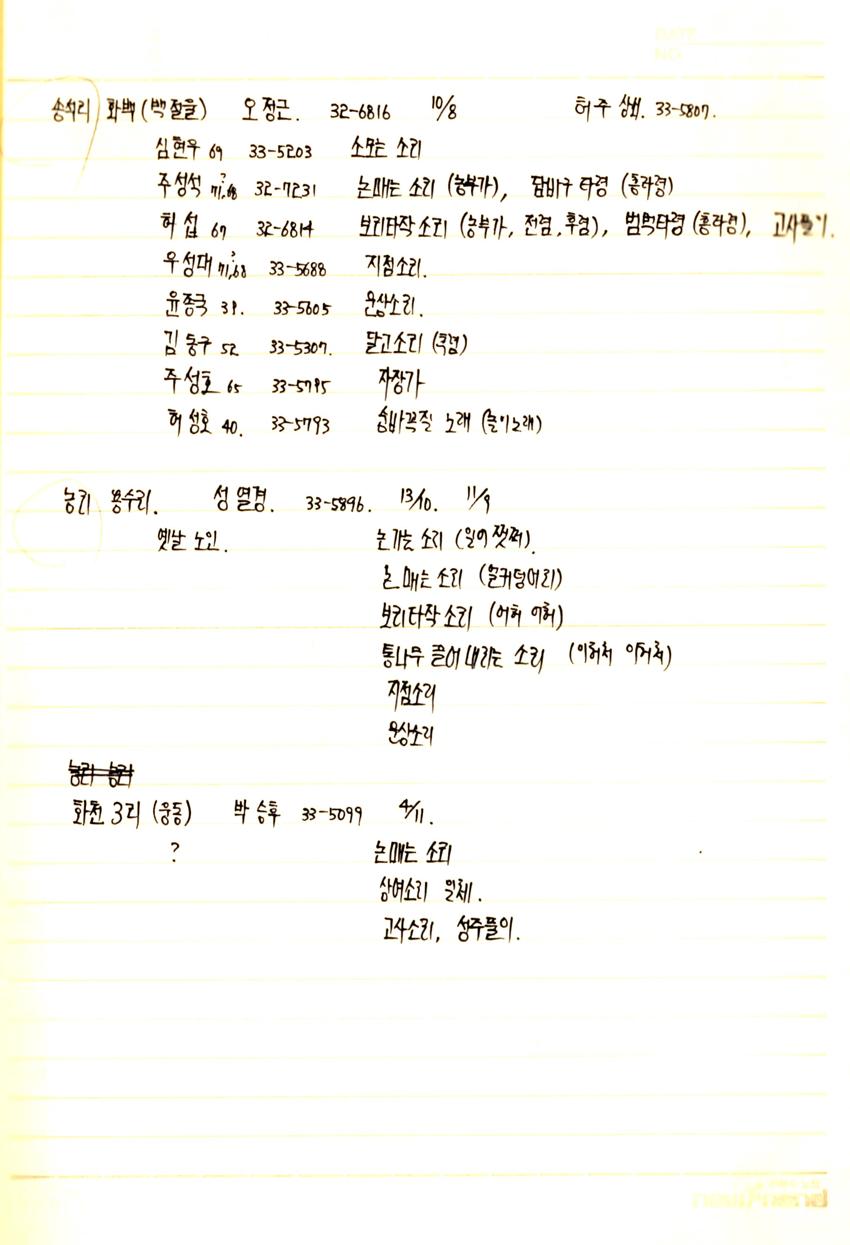 DATE
NO
송석리 화백 (백절골) 오정근. 32-6816 10/8 허주 상회. 33-5807.
심현우 69 33-5203 소모는 소리
주성석 71,68? 32-7231 논매는 소리 (농부가), 담바구 타령 (홍타령)
허섭 67 32-6814 보리타작소리 (농부가, 전렴, 후렴), 범벅타령 (홍타령), 고사풀이.
우성대 71,68? 33-5688 지점소리.
윤종국 39. 33-5605 운상소리.
김동구 52 33-5307. 달고소리 (후렴)
주성호 65 33-5795 자장가
허성호 40. 33-5793 숨바꼭질 노래 (놀이노래)
능리 용수리. 성열경. 33-5896. 13/10. 11/9
옛날 노인. 논가는 소리 (일이쩟쩌).
논매는 소리 (둘커덩어리)
보리타작소리 (어허 이허)
통나무 끌어내리는 소리 (이허쳐 이허쳐)
지점소리
운상소리
능리 능리
화천 3리 (웅동) 박승후 33-5099 4/11.
? 논매는 소리
상여소리 일체.
고사소리, 성주풀이.